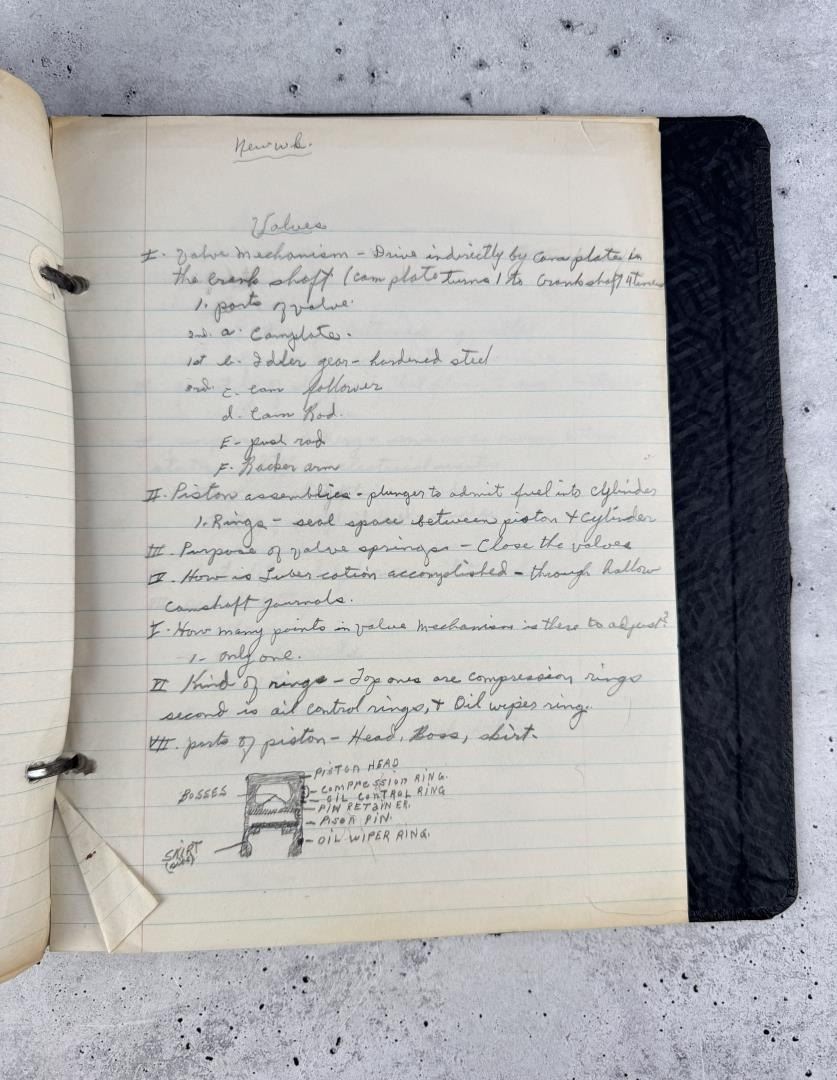 New wk.
Valves
I. Valve Mechanism - Drive indirectly by cam plate in
the crank shaft (cam plate turns 1 to crankshaft 4 times
1. parts of valve.
2nd. a. Camplate.
1st b. Idler gear - hardened steel
3rd. c. cam follower
d. Cam Rod.
E- push rod
F. Rocker arm
II. Piston assemblies - plunger to admit fuel into cylinder
1. Rings - seal space between piston & cylinder
III. Purpose of valve springs - Close the valves
IV. How is Lubercation accomplished - through hallow
camshaft journals.
V. How many points in valve mechanism is there to adjust?
1- only one.
VI Kind of rings - Top ones are compression rings
second is oil control rings, & Oil wiper ring.
VII. parts of piston - Head, Boss, skirt.
PISTON HEAD
BOSSES
COMPRESSION RING.
OIL CONTROL RING
PIN RETAINER.
PISON PIN.
OIL WIPER RING.
SKIRT